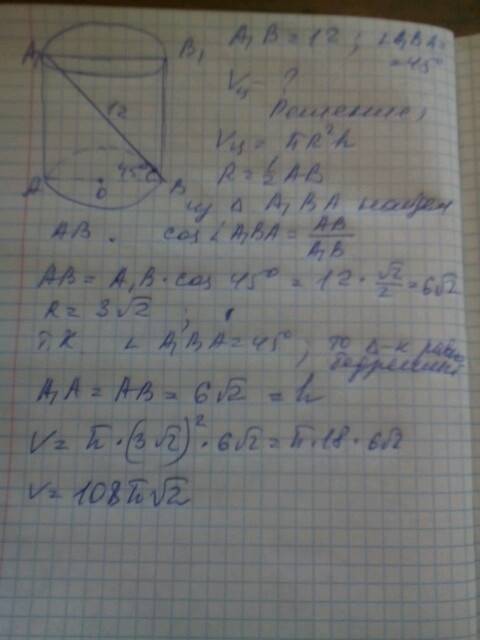 A₁B = 12 ; ∠A₁BA =
= 45°
Vц = ?
Решение:
Vц = πR²h
R = ½ AB
из Δ A₁BA найдем
AB . cos∠A₁BA = AB/A₁B
AB = A₁B · cos 45° = 12 · √2/2 = 6√2
R = 3√2 ;
Т.К. ∠ A₁BA = 45° ; то Δ-к равно
бедренный
A₁A = AB = 6√2 = h
V = π · (3√2)² · 6√2 = π · 18 · 6√2
V = 108π√2
A₁
B₁
12
45°
A
O
B